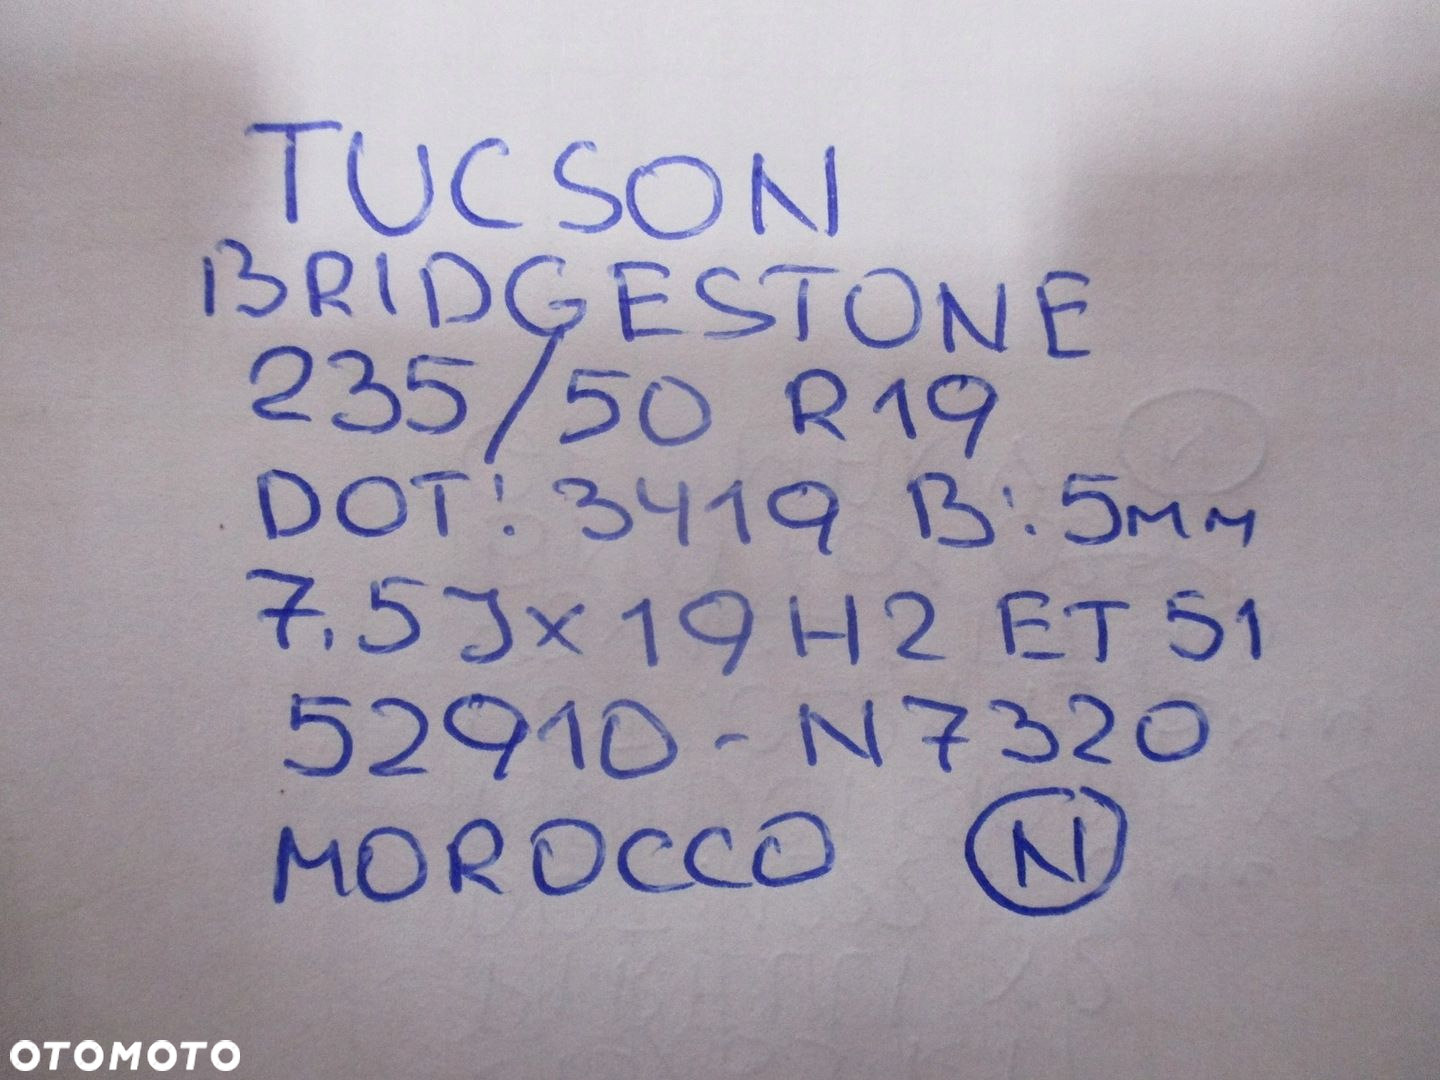 TUCSON
BRIDGESTONE
235/50 R19
DOT: 3419 B: 5mm
7.5Jx19H2 ET51
52910-N7320
MOROCCO N
OTOMOTO